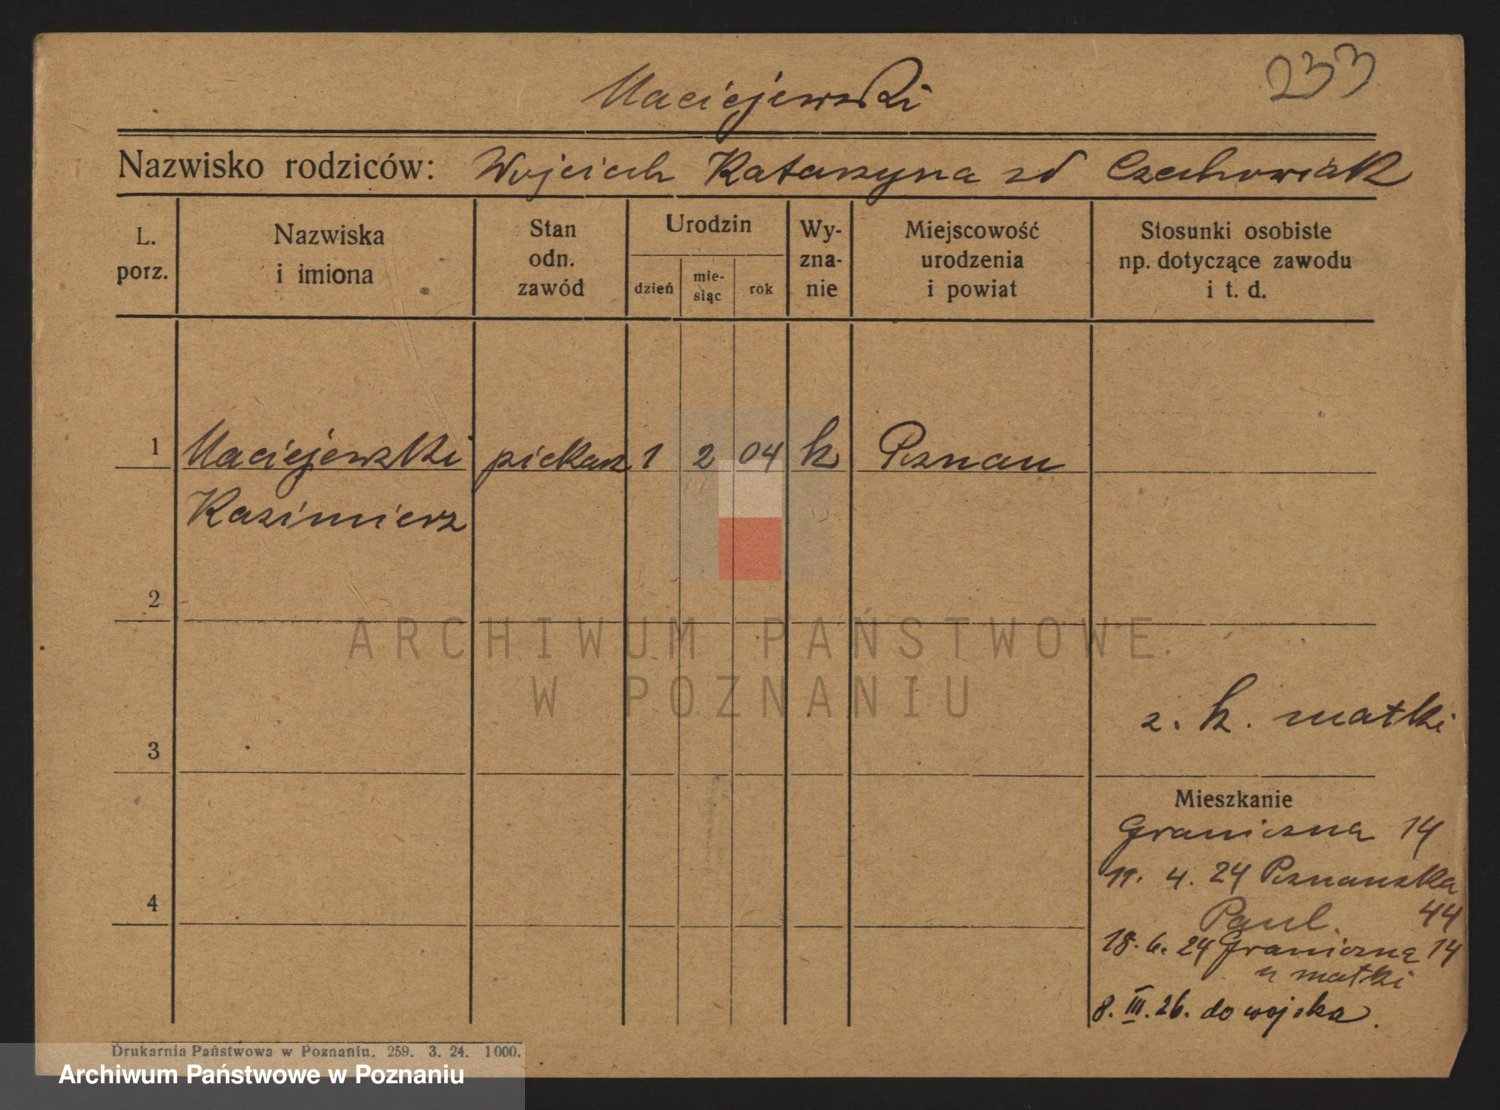 Maciejewski
233
Nazwisko rodziców: Wojciech Katarzyna zd Czechowiak
L. porz.
Nazwiska i imiona
Stan odn. zawód
Urodzin
dzień
mie-siąc
rok
Wy-zna-nie
Miejscowość urodzenia i powiat
Stosunki osobiste np. dotyczące zawodu i t. d.
1 Maciejewski piekarz 1 2 04 k Poznan
Kazimierz
2
ARCHIWUM PAŃSTWOWE
W POZNANIU
z. k. matki
3
Mieszkanie
Graniczna 14
11. 4. 24 Poznanska
4
Paul. 44
18. 6. 24 Graniczna 14
u matki
8. III. 26. do wojska.
Drukarnia Państwowa w Poznaniu. 259. 3. 24. 1000.
Archiwum Państwowe w Poznaniu